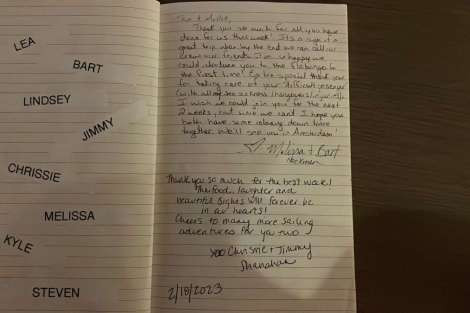 LEA
BART
LINDSEY
JIMMY
CHRISSIE
MELISSA
KYLE
STEVEN
Thank you so much for all you have
done for us this week! It's a sign of a
great trip when by the end we can call our
crew our friends.
could introduce you to the
the first time! Extra special thank you
for taking care of your "difficult" passenger
(with allergies across
I wish we could join you for the next
2 weeks, but since we can't I hope you
both have some relaxing down time
together. We'll see you in Amsterdam!
♡ Melissa + Bart
Thank you so much for the best week!
The food, laughter and
beautiful sights will forever be
in our hearts!
Cheers to many more sailing
adventures for you two
xoo Chrissie + Jimmy
Shanahan
2/18/2023